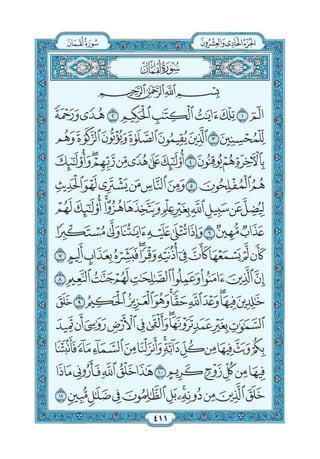 الجُزْءُ الحَادِي وَالعِشْرُونَ
سُورَةُ لُقْمَانَ
سُورَةُ لُقْمَانَ
بِسْمِ ٱللَّهِ ٱلرَّحْمَٰنِ ٱلرَّحِيمِ
الٓمٓ ١ تِلْكَ ءَايَٰتُ ٱلْكِتَٰبِ ٱلْحَكِيمِ ٢ هُدًى وَرَحْمَةً
لِّلْمُحْسِنِينَ ٣ ٱلَّذِينَ يُقِيمُونَ ٱلصَّلَوٰةَ وَيُؤْتُونَ ٱلزَّكَوٰةَ وَهُم
بِٱلْءَاخِرَةِ هُمْ يُوقِنُونَ ٤ أُو۟لَٰٓئِكَ عَلَىٰ هُدًى مِّن رَّبِّهِمْ ۖ وَأُو۟لَٰٓئِكَ
هُمُ ٱلْمُفْلِحُونَ ٥ وَمِنَ ٱلنَّاسِ مَن يَشْتَرِى لَهْوَ ٱلْحَدِيثِ
لِيُضِلَّ عَن سَبِيلِ ٱللَّهِ بِغَيْرِ عِلْمٍ وَيَتَّخِذَهَا هُزُوًا ۚ أُو۟لَٰٓئِكَ لَهُمْ
عَذَابٌ مُّهِينٌ ٦ وَإِذَا تُتْلَىٰ عَلَيْهِ ءَايَٰتُنَا وَلَّىٰ مُسْتَكْبِرًا
كَأَن لَّمْ يَسْمَعْهَا كَأَنَّ فِىٓ أُذُنَيْهِ وَقْرًا ۖ فَبَشِّرْهُ بِعَذَابٍ أَلِيمٍ ٧
إِنَّ ٱلَّذِينَ ءَامَنُوا۟ وَعَمِلُوا۟ ٱلصَّٰلِحَٰتِ لَهُمْ جَنَّٰتُ ٱلنَّعِيمِ ٨
خَٰلِدِينَ فِيهَا ۖ وَعْدَ ٱللَّهِ حَقًّا ۚ وَهُوَ ٱلْعَزِيزُ ٱلْحَكِيمُ ٩ خَلَقَ
ٱلسَّمَٰوَٰتِ بِغَيْرِ عَمَدٍ تَرَوْنَهَا ۖ وَأَلْقَىٰ فِى ٱلْأَرْضِ رَوَٰسِىَ أَن تَمِيدَ
بِكُمْ وَبَثَّ فِيهَا مِن كُلِّ دَآبَّةٍ ۚ وَأَنزَلْنَا مِنَ ٱلسَّمَآءِ مَآءً فَأَنۢبَتْنَا
فِيهَا مِن كُلِّ زَوْجٍ كَرِيمٍ ١٠ هَٰذَا خَلْقُ ٱللَّهِ فَأَرُونِى مَاذَا
خَلَقَ ٱلَّذِينَ مِن دُونِهِۦ ۚ بَلِ ٱلظَّٰلِمُونَ فِى ضَلَٰلٍ مُّبِينٍ ١١
٤١١